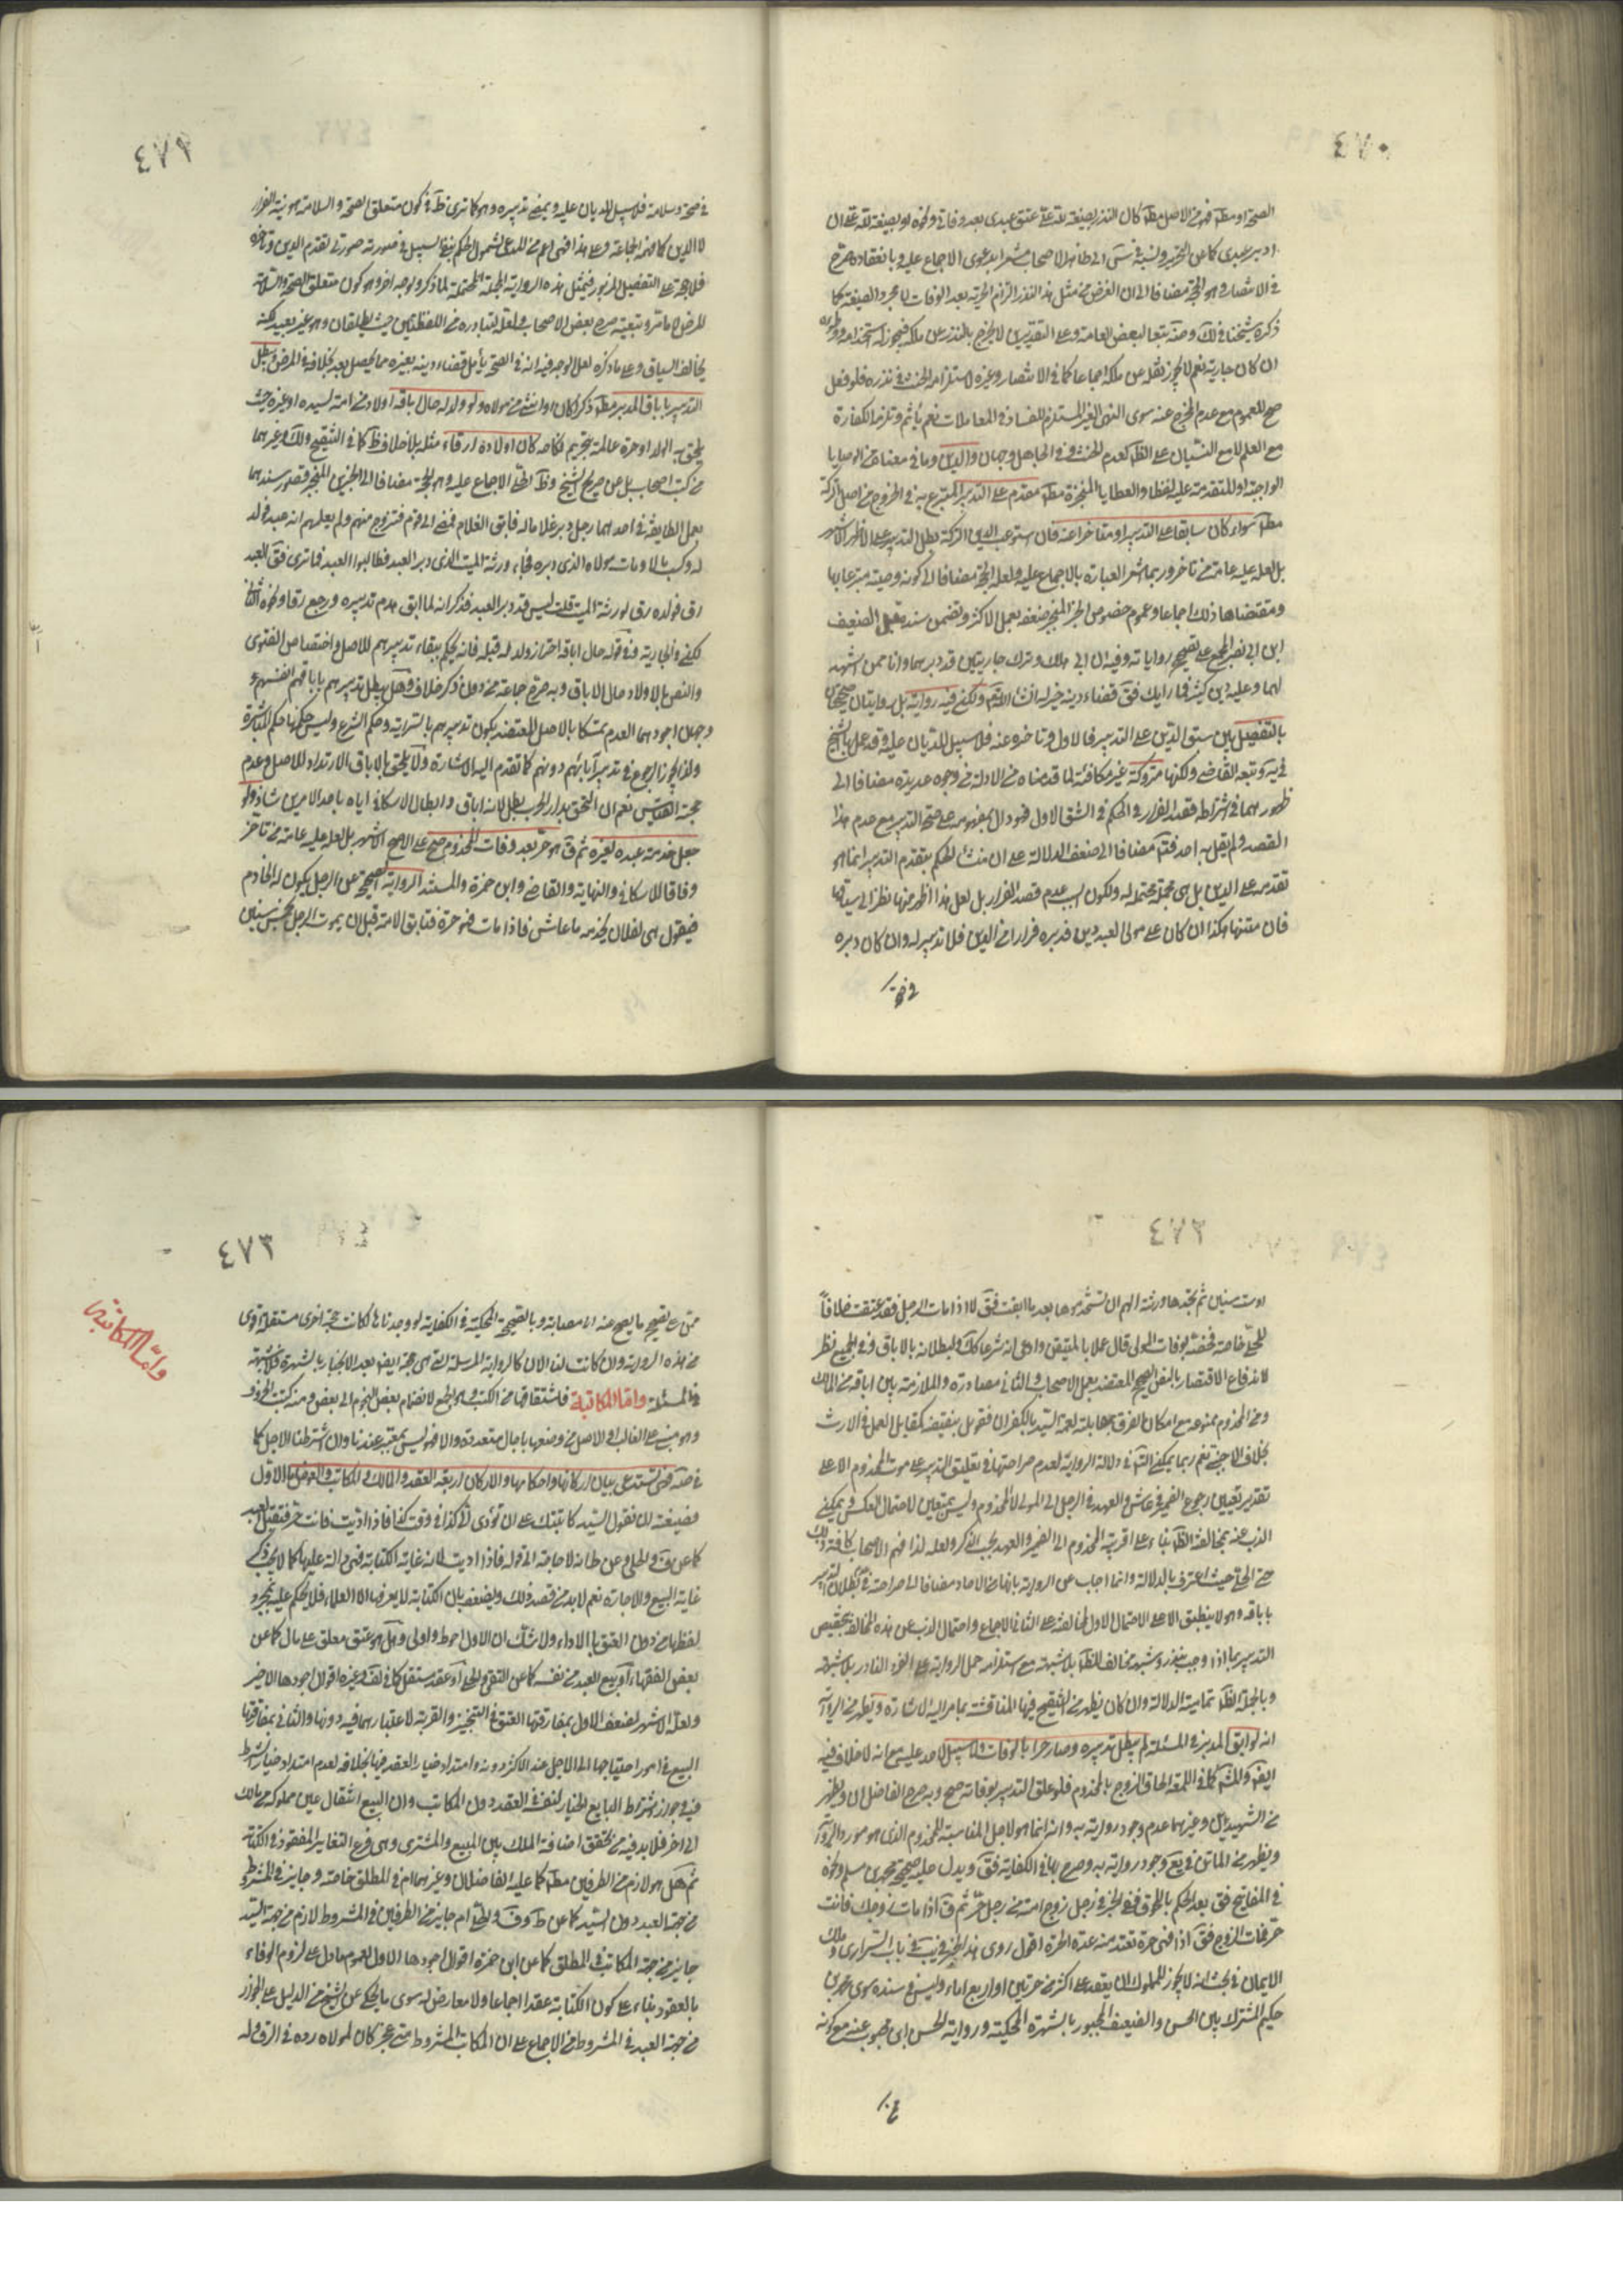 ٤٧٠
الصحة او مطلقا فهو من الاصل مطلقا كان النذر بصيغة لله علي عتق عبدي بعد وفاتي ونحوه او بصيغة لله علي ان
ادبر عبدي كما عن التحرير
في الانتصار وهو الحجة مضافا الى ان الغرض من مثل هذا النذر التزام الحرية بعد الوفات لا مجرد الصيغة كما
ذكره شيخنا في لك وضه تبعا لبعض العامة وعلى التقديرين لا يخرج بالنذر عن ملكه فيجوز له استخدامه ووطؤه
ان كان جارية نعم لا يجوز نقله عن ملكه اجماعا كما في الانتصار وغيره لاستلزامه الحنث في نذره فلو فعل
صح للعموم مع عدم المخرج عنه سوى النهي الغير المستلزم للفساد في المعاملات نعم يأثم وتلزمه الكفارة
مع العلم لا مع النسيان على الظاهر لعدم الحنث وفي الجاهل وجهان والدين وما في معناه من الوصايا
الواجبة او المتقدمة عليه لفظا والعطايا المنجزة مطلقا مقدم على التدبير المتبرع به في الخروج من اصل التركة
مطلقا سواء كان سابقا على التدبير او متاخرا عنه فان استوعب الدين التركة بطل التدبير على الاظهر الاشهر
بل لعله عليه عامة من تاخر وربما اشعر العبارة بالاجماع عليه ولعله الحجة مضافا الى كونه وصية متبرعا بها
ومقتضاها ذلك اجماعا وعموم خصوص الخبر المنجبر ضعفه بعمل الاكثر وتضمن سنده قبل الضعيف
ابن ابي نصر المجمع على تصحيح رواياته وفيه ان ابي هلك وترك جاريتين قد دبرهما وانا ممن اشهد
لهما وعليه دين كثير فما رايك فق قضاء دينه خير له انشاء الله ولكن فيه رواية بل روايتان صحيحتان
بالتفصيل بين سبق الدين على التدبير فالاول وتاخره عنه فلا سبيل للديان عليه وقد عمل بها الشيخ
في يه وتبعه القاضي ولكنها متروكة غير مكافئة لما قدمناه من الادلة من وجوه عديدة مضافا الى
ظهورهما في اشتراط قصد الفرار في الحكم في الشق الاول فهو دال بمفهومه على صحة التدبير مع عدم هذا
القصد ولم يقل به احد فتا مضافا الى ضعف الدلالة على ان منشا الحكم بتقدم التدبير انما هو
تقدمه على الدين بل هي مجملة محتملة له ولكون السبب عدم قصد الفرار بل لعل هذا اظهر منها نظرا الى سياقها
فان متنها هكذا ان كان على مولى العبد دين فدبره فرارا من الدين فلا تدبير له وان كان دبره
في صحة
٤٧١
في صحة وسلامة فلا سبيل للديان عليه ويمضي تدبيره وهو كما ترى ظاهر في كون متعلق الصحة والسلامة هو نية الفرار
لا الدين كما فهمه الجماعة وعلى هذا فهي اعم من المدعى لشمول الحكم بنفي السبيل في صورته صورتي تقدم الدين وتاخره
فلا حجة على التفصيل المزبور فيمثل هذه الرواية المجملة المحتملة لما ذكر ولوجه اخر وهو كون متعلق الصحة والسلامة
المرض لا ما مر وبتعيينه صرح بعض الاصحاب ولعله لتبادره من اللفظتين حيث يطلقان وهو غير بعيد لكنه
يخالف السياق وعلى ما ذكره لعل الوجه فيه انه في الصحة يأمل قضاء دينه بغيره مما يحصل بعد بخلافه في المرض ويبطل
التدبير باباق المدبر مطلقا ذكرا كان او انثى من مولاه ولو ولد له حال باقه اولاد من امة لسيده او غيره حيث
يلحق به الولد او حرة عالمة بتحريم نكاحه كان اولاده ارقاء مثله بلا خلاف ظاهر كما في التنقيح ولك وغيرهما
من كتب اصحاب بل عن صريح الشيخ وظاهر الحلي الاجماع عليه وهو الحجة مضافا الى الخبرين المنجبر قصور سندهما
بعمل الطايفة في احدهما رجل دبر غلاما له فابق الغلام فمضى الى قوم فتزوج منهم ولم يعلمهم انه عبد فولد
له وكسب مالا ومات مولاه الذي دبره فجاء ورثة الميت الذي دبر العبد فطالبوا العبد فما ترى فق العبد
رق فولده رق لورثة الميت قلت ليس قد دبر العبد فذكر انه لما ابق هدم تدبيره ورجع رقا ونحوه الثاني
لكنه في الجارية وفي قوله حال اباقه احتراز ولد له قبله فانه يحكم ببقاء تدبيرهم للاصل واختصاص الفتوى
والنص بالاولاد حال الاباق وبه صرح جماعة من دون ذكر خلاف وهل يبطل تدبيرهم باباقهم انفسهم
وجهان اجودهما العدم تمسكا بالاصل المعتضد بكون تدبيرهم بالسراية وحكم الشرع وليس حكمها حكم المباشرة
ولذا يجوز الرجوع في تدبير آبائهم دونهم كما تقدم اليه الاشارة ولا يلحق بالاباق الارتداد للاصل وعدم
حجة القياس نعم ان التحق بدار الحرب بطل لانه اباق وابطال الاسكافي اياه باحد الامرين شاذ ولو
جعل خدمة عبده لغيره ثم ق هو حر بعد وفات المخدوم صح على الاصح الاشهر بل لعله عليه عامة من تاخر
وفاقا للاسكافي والنهاية والقاضي وابن حمزة والمستند الرواية الصحيحة عن الرجل يكون له الخادم
فيقول هي لفلان تخدمه ما عاش فاذا مات فهو حرة فتابق الامة قبل ان يموت الرجل بخمس سنين
٤٧٢
او ست سنين ثم يجدها ورثته الهم ان يستخدموها بعد ما ابقت فق لا اذا مات الرجل فقد عتقت خلافا
للحلي خاصة فخصه بوفات المولى قال عملا بالمتيقن وادعى انه شرعا كك ولبطلانه بالاباق وفي الجميع نظر
لاندفاع الاقتصار بالنص الصحيح المعتضد بعمل الاصحاب والثاني مصادرة والملازمة بين اباقه من المالك
ومن المخدوم ممنوعة مع امكان الفرق بمقابلة نعمة السيد بالكفران فقوبل بنقيضه كمقابل العمل في الارث
بخلاف الاجنبي نعم ربما يمكن التأمل في دلالة الرواية لعدم صراحتها في تعليق التدبير على موت المخدوم الا على
تقدير تعيين رجوع الضمير في عاش والعهد في الرجل الى المولى لا المخدوم وليس بمتعين لاحتمال العكس ويمكن
الذب عنه بمخالفة الظاهر بناء على اقربية المخدوم الى الضمير والعهد بحسب الذكر ولعله لذا فهم الاصحاب كافة ذلك
حتى الحلي حيث اعترف بالدلالة وانما اجاب عن الرواية بانها من الاحاد مضافا الى صراحته في بطلان التدبير
باباقه وهو لا ينطبق الا على الاحتمال الاول لمخالفته على الثاني الاجماع واحتمال الذب عن هذه المخالفة بتخصيص
التدبير بما اذا وجب بنذر وشبهه مخالف للظاهر بلا شبهة مع استلزامه حمل الرواية على الفرد النادر بلا شبهة
وبالجملة الظاهر تمامية الدلالة وان كان يظهر من التنقيح فيها المناقشة بما مر اليه الاشارة ويظهر من الرواية
انه لو ابق المدبر في المسئلة لم يبطل تدبيره وصار حرا بالوفات ولا سبيل لاحد عليه مع انه لا خلاف فيه
ايضا والمشهور كما في اللمعة الحاق الزوج بالمخدوم فلو علق التدبير بوفاته صح وبه صرح الفاضلان ويظهر
من الشهيدين وغيرهما عدم وجود رواية به وانه انما هو لاجل المناسبة للمخدوم الذي هو مورد الرواية
ويظهر من الماتن في يع وجود رواية به وصرح بها في الكفاية فق ويدل عليه صحيحة محمد بن مسلم ونحوه
في المفاتيح فق بعد الحكم باللحوق ففي الخبر في رجل زوج امته من رجل حر ثم ق اذا مات زوجك فانت
حرة فمات الزوج فق اذا فهي حرة تعتد منه عدة الحرة اقول روى هذا الخبر في يب في باب السراري وملك
الايمان في بحث انه لا يجوز للمملوك ان يعقد على اكثر من حرتين او اربع اماء وليس في سنده سوى محمد بن
حكيم المشترك بين الحسن والضعيف المجبور بالشهرة المحكية ورواية الحسن ابن محبوب عنه مع كونه
٤٧٣
ممن على تصحيح ما يصح عنه اصحابه وبالصحيحة المحكية في الكفاية لو وجدناها لكانت حجة اخرى مستقلة اقوى
من هذه الرواية وان كانت لنا الان كالرواية المرسلة التي هي حجة ايضا بعد الانجبار بالشهرة فلا شبهة
في المسئلة واما المكاتبة فاشتقاقها من الكتب وهو الجمع لانضمام بعض النجوم الى بعض ومنه كتبت الحروف
وهو مبني على الغالب او الاصل من وضعها باجال متعددة والا فهو ليس بمعتبر عندنا وان اشترطنا الاجل كما
في ضه فهي تستدعي بيان اركانها واحكامها والاركان اربعة العقد والمالك والمكاتب والعوض اما الاول
فصيغته ان يقول السيد كاتبتك على ان تؤدي الي كذا في وقت كذا فاذا اديت فانت حر فيقبل العبد
كما عن ف والحلي وعن ط انه لا حاجة الى قوله فاذا اديت لانه غاية الكتابة فهي دالة عليها كما لا يجب ذكر
غاية البيع والاجارة نعم لا بد من قصد ذلك ويضعف بان الكتابة لا يعرفها الا العلماء فلا يحكم عليه بمجرد
لفظها من دون العتق بالاداء ولا شك ان الاول احوط واولى وهل هو عتق معلق على مال كما عن
بعض الفقهاء او بيع للعبد من نفسه كما عن التقي والحلي او عقد مستقل كما في لف وغيره اقوال اجودها الاخير
ولعله الاشهر لضعف الاول بمفارقتها العتق في التنجيز والقربة لاعتبارهما فيه دونها والثاني بمفارقتها
البيع في امور احتياجها الى الاجل عند الاكثر دونه وامتداد خيار العقد فيها بخلافه لعدم امتداد خيار الشرط
فيه وجواز اشتراط البايع الخيار لنفسه في العقد دون المكاتب وان البيع انتقال عين مملوكة من مالك
الى اخر فلا بد فيه من تحقق اضافة الملك بين المبيع والمشتري وهي فرع التغاير المفقود في الكتابة
ثم هل هو لازم من الطرفين مطلقا كما عليه الفاضلان وغيرهما ام في المطلق خاصة وجايز في المشروط
من جهة العبد دون السيد كما عن ط وف والحلي ام جايز من الطرفين في المشروط لازم من جهة السيد
جايز من جهة المكاتب في المطلق كما عن ابن حمزة اقوال اجودها الاول لعموم ما دل على لزوم الوفاء
بالعقود بناء على كون الكتابة عقدا اجماعا ولا معارض له سوى ما يحكى عن الشيخ من الدليل على الجواز
من جهة العبد في المشروط من الاجماع على ان المكاتب المشروط متى عجز كان لمولاه رده في الرق وله
واما المكاتبة